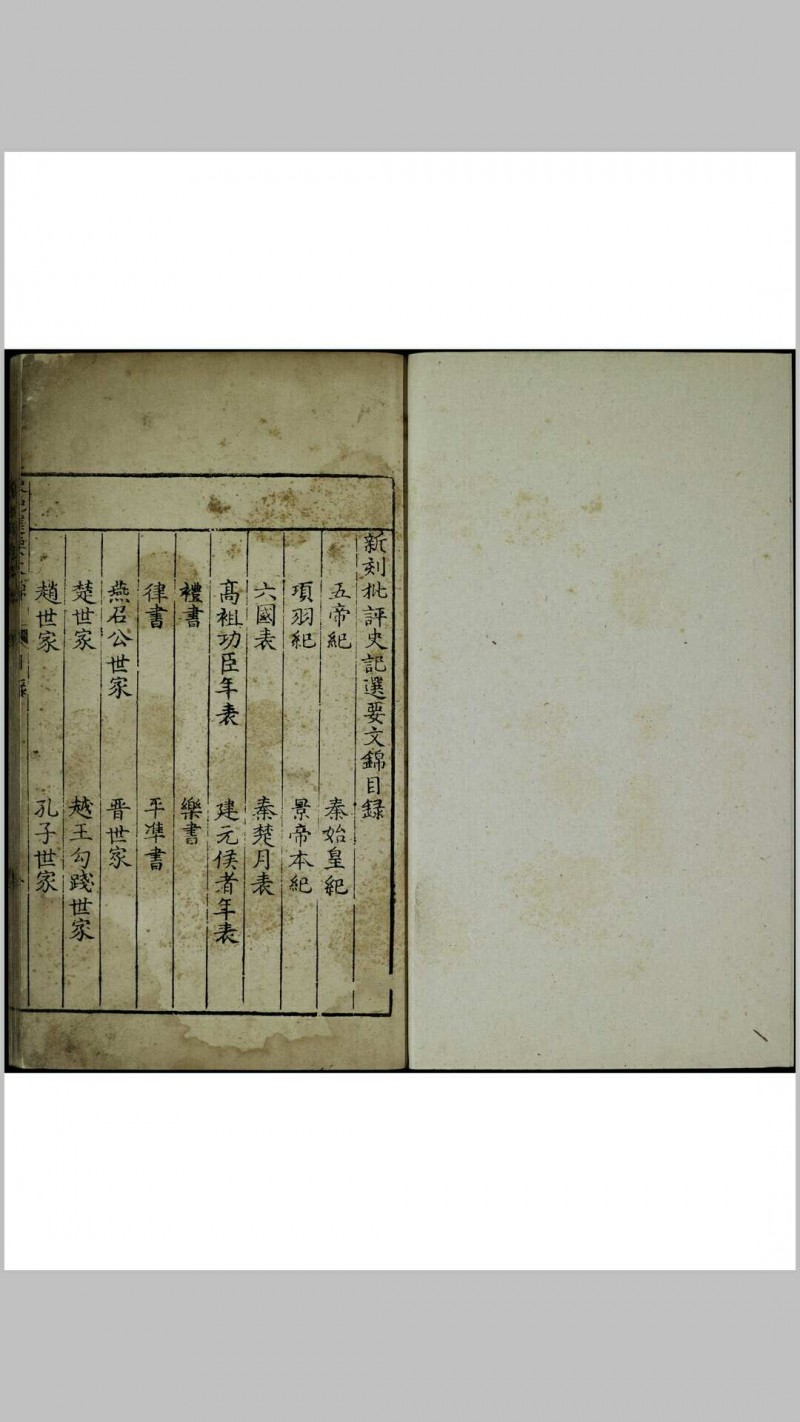 新刻批評史記選要文錦目録
五帝紀　秦始皇紀
項羽紀　景帝本紀
六國表　秦楚月表
髙祖功臣年表　建元侯者年表
禮書　樂書
律書　平準書
燕召公世家　晋世家
楚世家　越王勾踐世家
趙世家　孔子世家